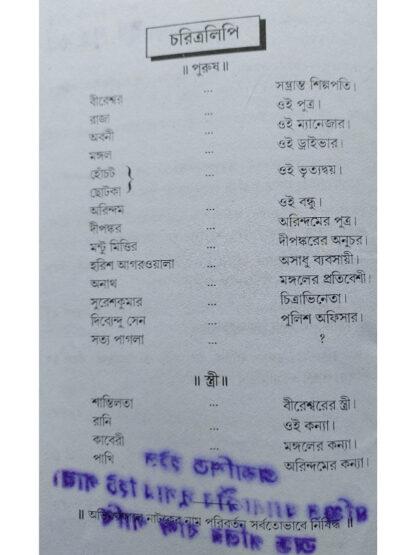 চরিত্রলিপি
॥ পুরুষ ॥
বীরেশ্বর ... সম্ভ্রান্ত শিল্পপতি।
রাজা ... ওই পুত্র।
অবনী ... ওই ম্যানেজার।
মঙ্গল ... ওই ড্রাইভার।
হোঁচট } ... ওই ভৃত্যদ্বয়।
ছোটকা
অরিন্দম ... ওই বন্ধু।
দীপঙ্কর ... অরিন্দমের পুত্র।
মন্টু মিত্তির ... দীপঙ্করের অনুচর।
হরিশ আগরওয়ালা ... অসাধু ব্যবসায়ী।
অনাথ ... মঙ্গলের প্রতিবেশী।
সুরেশকুমার ... চিত্রাভিনেতা।
দিব্যেন্দু সেন ... পুলিশ অফিসার।
সত্য পাগলা ... ?
॥ স্ত্রী ॥
শান্তিলতা ... বীরেশ্বরের স্ত্রী।
রানি ... ওই কন্যা।
কাবেরী ... মঙ্গলের কন্যা।
পাখি ... অরিন্দমের কন্যা।
॥ নাটকের নাম পরিবর্তন সর্বতোভাবে নিষিদ্ধ ॥